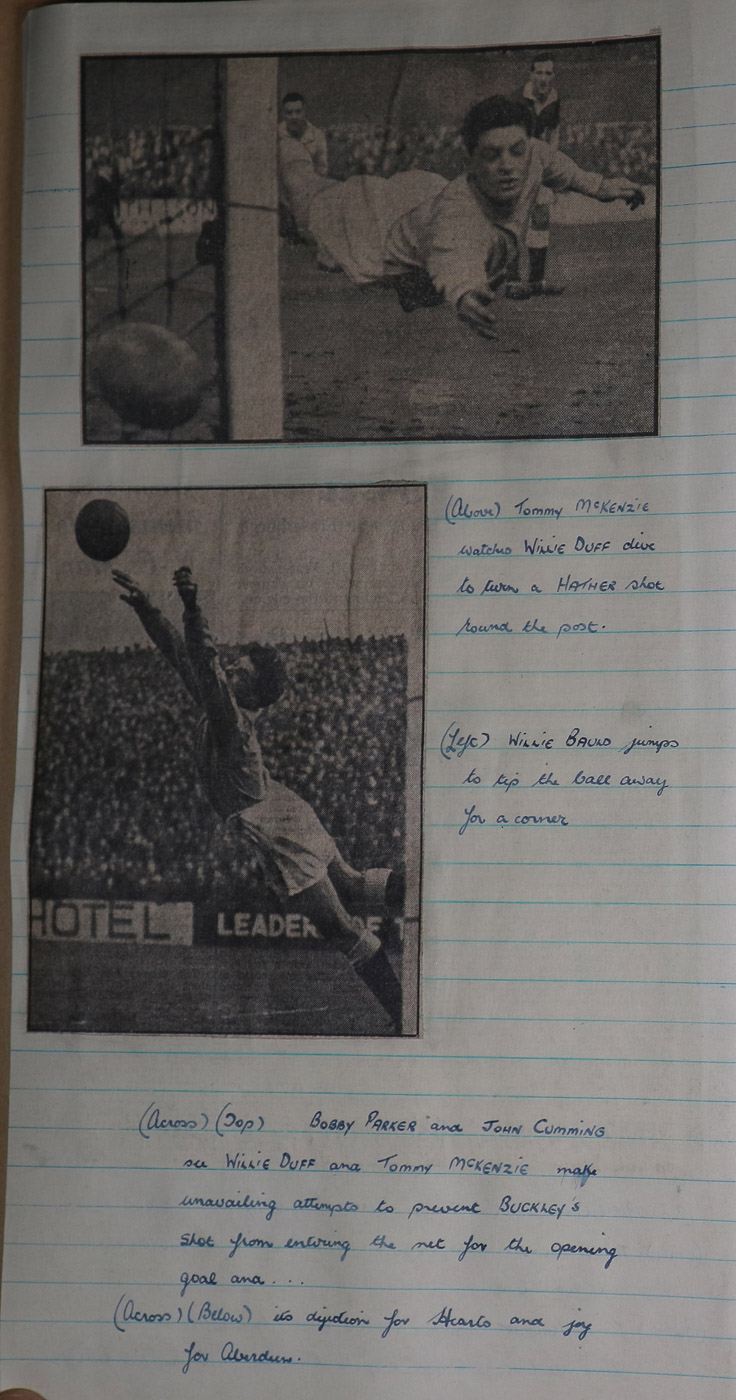 HOTEL
LEADER OF T
(Above) Tommy McKENZIE
watches WILLIE DUFF dive
to turn a HATHER shot
round the post.
(Left) WILLIE BAULD jumps
to tip the ball away
for a corner
(Across) (Top) BOBBY PARKER and JOHN CUMMING
see WILLIE DUFF and Tommy McKENZIE make
unavailing attempts to prevent BUCKLEY's
shot from entering the net for the opening
goal and...
(Across) (Below) its dejection for Hearts and joy
for Aberdeen.